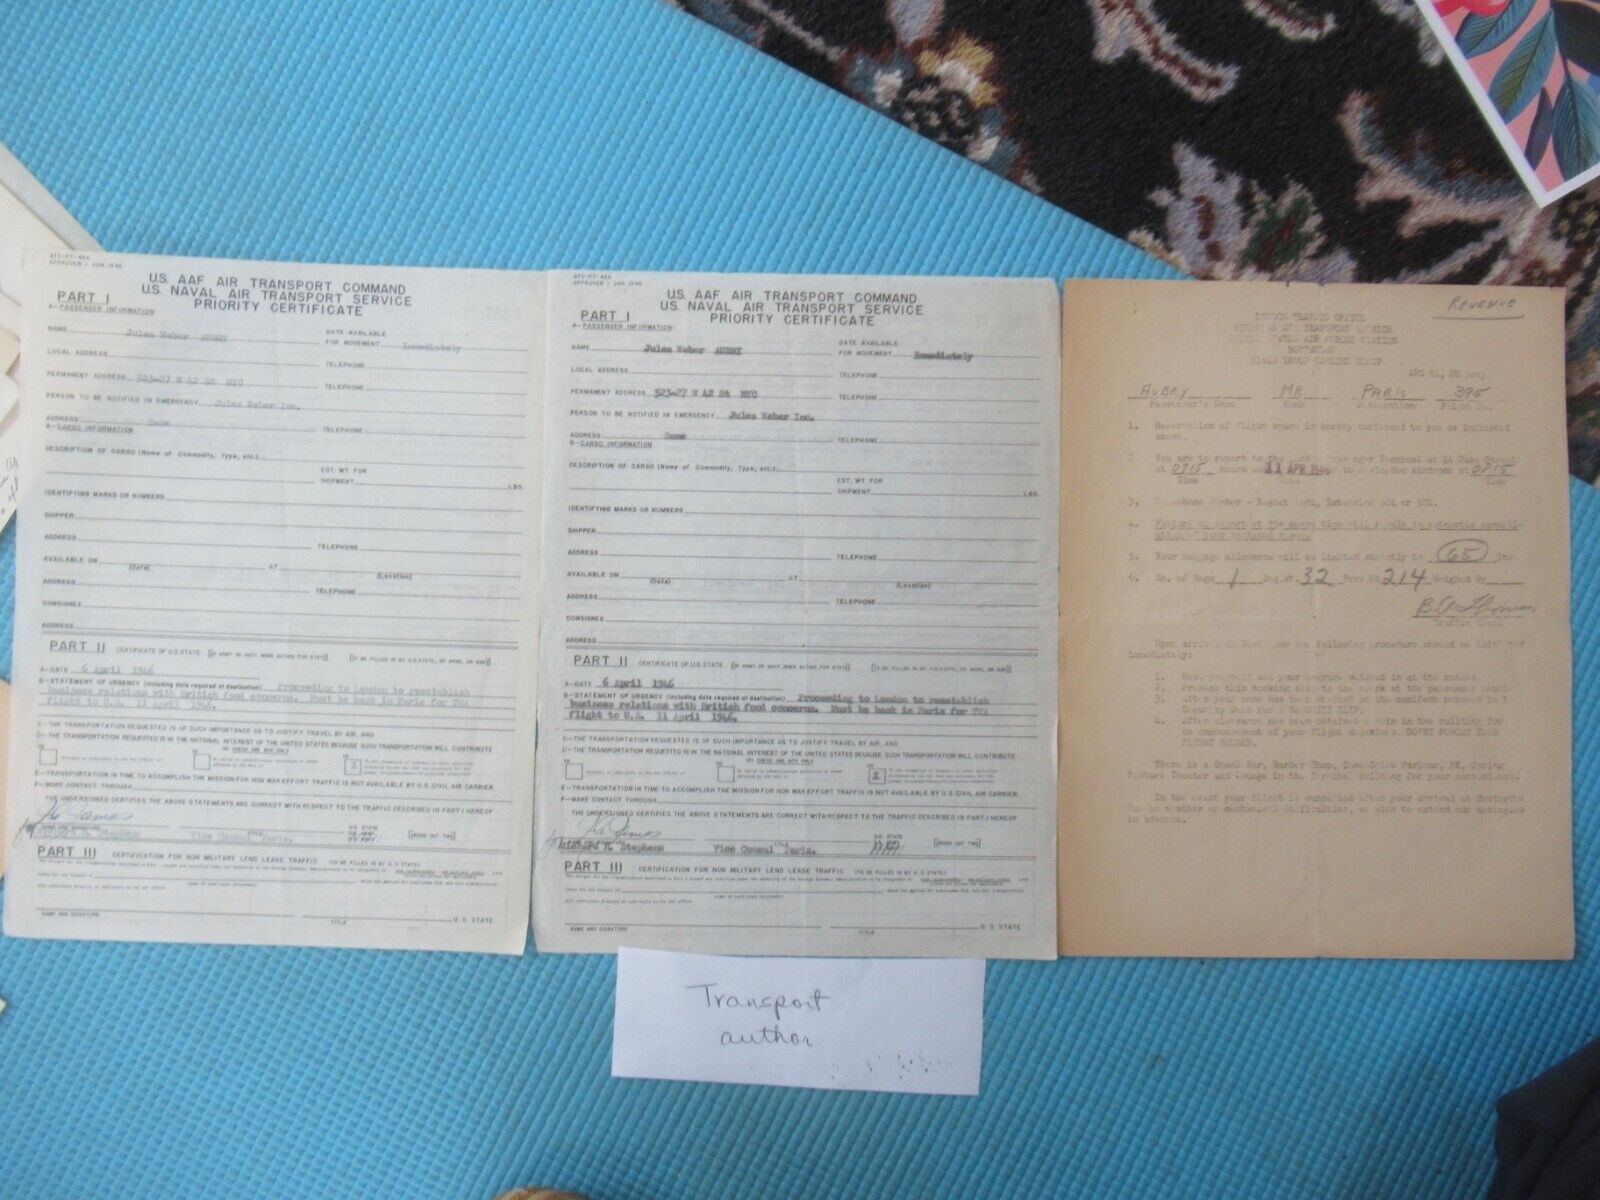 ATS-PT-42A
APPROVED 1 JAN. 1946
U.S. AAF AIR TRANSPORT COMMAND
U.S. NAVAL AIR TRANSPORT SERVICE
PRIORITY CERTIFICATE
PART I
A-PASSENGER INFORMATION:
NAME Jules Weber AUBRY DATE AVAILABLE FOR MOVEMENT Immediately
LOCAL ADDRESS TELEPHONE
PERMANENT ADDRESS 523-27 W 42 St NYC TELEPHONE
PERSON TO BE NOTIFIED IN EMERGENCY Jules Weber Inc.
ADDRESS Same TELEPHONE
B-CARGO INFORMATION
DESCRIPTION OF CARGO (Name of Commodity, Type, etc.)
EST. WT. FOR SHIPMENT LBS.
IDENTIFYING MARKS OR NUMBERS
SHIPPER
ADDRESS TELEPHONE
AVAILABLE ON (Date) AT (Location)
ADDRESS TELEPHONE
CONSIGNEE
ADDRESS
PART II CERTIFICATE OF U.S. STATE [OR ARMY OR NAVY WHEN ACTING FOR STATE] [TO BE FILLED IN BY U.S. STATE, OR ARMY, OR NAVY]
A-DATE 6 April 1946
B-STATEMENT OF URGENCY (Including date required at destination) Proceeding to London to reestablish
business relations with British food concerns. Must be back in Paris for TWA
flight to U.S. 11 April 1946.
C-THE TRANSPORTATION REQUESTED IS OF SUCH IMPORTANCE AS TO JUSTIFY TRAVEL BY AIR, AND
D-THE TRANSPORTATION REQUESTED IS IN THE NATIONAL INTEREST OF THE UNITED STATES BECAUSE SUCH TRANSPORTATION WILL CONTRIBUTE
CHECK ONE BOX ONLY
X
E-TRANSPORTATION IN TIME TO ACCOMPLISH THE MISSION FOR NON WAR EFFORT TRAFFIC IS NOT AVAILABLE BY U.S. CIVIL AIR CARRIER
F-MAKE CONTACT THROUGH
THE UNDERSIGNED CERTIFIES THE ABOVE STATEMENTS ARE CORRECT WITH RESPECT TO THE TRAFFIC DESCRIBED IN PART I HEREOF
Stephens Vice Consul TITLE Paris. U.S. STATE [CROSS OUT TWO]
PART III CERTIFICATION FOR NON MILITARY LEND LEASE TRAFFIC (TO BE FILLED IN BY U.S. STATE)
NAME AND SIGNATURE TITLE U.S. STATE
ATS-PT-42A
APPROVED 1 JAN. 1946
U.S. AAF AIR TRANSPORT COMMAND
U.S. NAVAL AIR TRANSPORT SERVICE
PRIORITY CERTIFICATE
PART I
A-PASSENGER INFORMATION:
NAME Jules Weber AUBRY DATE AVAILABLE FOR MOVEMENT Immediately
LOCAL ADDRESS TELEPHONE
PERMANENT ADDRESS 523-27 W 42 St NYC TELEPHONE
PERSON TO BE NOTIFIED IN EMERGENCY Jules Weber Inc.
ADDRESS Same TELEPHONE
B-CARGO INFORMATION
DESCRIPTION OF CARGO (Name of Commodity, Type, etc.)
EST. WT. FOR SHIPMENT LBS.
IDENTIFYING MARKS OR NUMBERS
SHIPPER
ADDRESS TELEPHONE
AVAILABLE ON (Date) AT (Location)
ADDRESS TELEPHONE
CONSIGNEE
ADDRESS
PART II CERTIFICATE OF U.S. STATE [OR ARMY OR NAVY WHEN ACTING FOR STATE] [TO BE FILLED IN BY U.S. STATE, OR ARMY, OR NAVY]
A-DATE 6 April 1946
B-STATEMENT OF URGENCY (Including date required at destination) Proceeding to London to reestablish
business relations with British food concerns. Must be back in Paris for TWA
flight to U.S. 11 April 1946.
C-THE TRANSPORTATION REQUESTED IS OF SUCH IMPORTANCE AS TO JUSTIFY TRAVEL BY AIR, AND
D-THE TRANSPORTATION REQUESTED IS IN THE NATIONAL INTEREST OF THE UNITED STATES BECAUSE SUCH TRANSPORTATION WILL CONTRIBUTE
CHECK ONE BOX ONLY
X
E-TRANSPORTATION IN TIME TO ACCOMPLISH THE MISSION FOR NON WAR EFFORT TRAFFIC IS NOT AVAILABLE BY U.S. CIVIL AIR CARRIER
F-MAKE CONTACT THROUGH
THE UNDERSIGNED CERTIFIES THE ABOVE STATEMENTS ARE CORRECT WITH RESPECT TO THE TRAFFIC DESCRIBED IN PART I HEREOF
Stephens Vice Consul TITLE Paris. U.S. STATE [CROSS OUT TWO]
PART III CERTIFICATION FOR NON MILITARY LEND LEASE TRAFFIC (TO BE FILLED IN BY U.S. STATE)
NAME AND SIGNATURE TITLE U.S. STATE
REVENUE
LONDON TRAFFIC OFFICE
EUROPEAN AIR TRANSPORT SERVICE
UNITED STATES AIR FORCES STATION
BOVINGDON
TROOP CARRIER GROUP
US Army
AUBRY MR. PARIS 395
Passenger's Name Destination Flight No.
1. Reservation of flight space is hereby confirmed to you as indicated
above.
2. You are to report to the Passenger Terminal at 14 Duke Street
at 0715 hours on 11 APR 1946 to Bovingdon Airdrome at 0815
Time Date Time
3. Telephone Number - Regent Extension 504 or 501.
4. Failure to report at the above time will result in
5. Your baggage allowance will be limited strictly to 65 lbs.
6. No. of Bags 1 Bag. Wt. 32 Pers. Wt. 214 Weighed By
Traffic Clerk
Upon arrival at Bovingdon the following procedure should be
immediately:
1. Have yourself and your baggage weighed in at the scales.
2. Present this booking slip to the clerk at the passenger
3. After your name has been checked on the manifest proceed to
Security Desk for a SECURITY SLIP.
4. After clearance has been obtained remain in the building for
an announcement of your flight departure. DON'T FORGET YOUR
There is a Snack Bar, Barber Shop, Shoe-Shine Parlour, PX, Moving
Picture Theater and Lounge in the Terminal Building for your convenience.
In the event your flight is cancelled after your arrival at Bovingdon
due to weather or mechanical difficulties, we wish to extend our apologies
in advance.
Transport
author